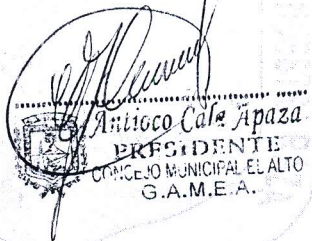 Antioco Cala Apaza
PRESIDENTE
CONCEJO MUNICIPAL EL ALTO
G.A.M.E.A.